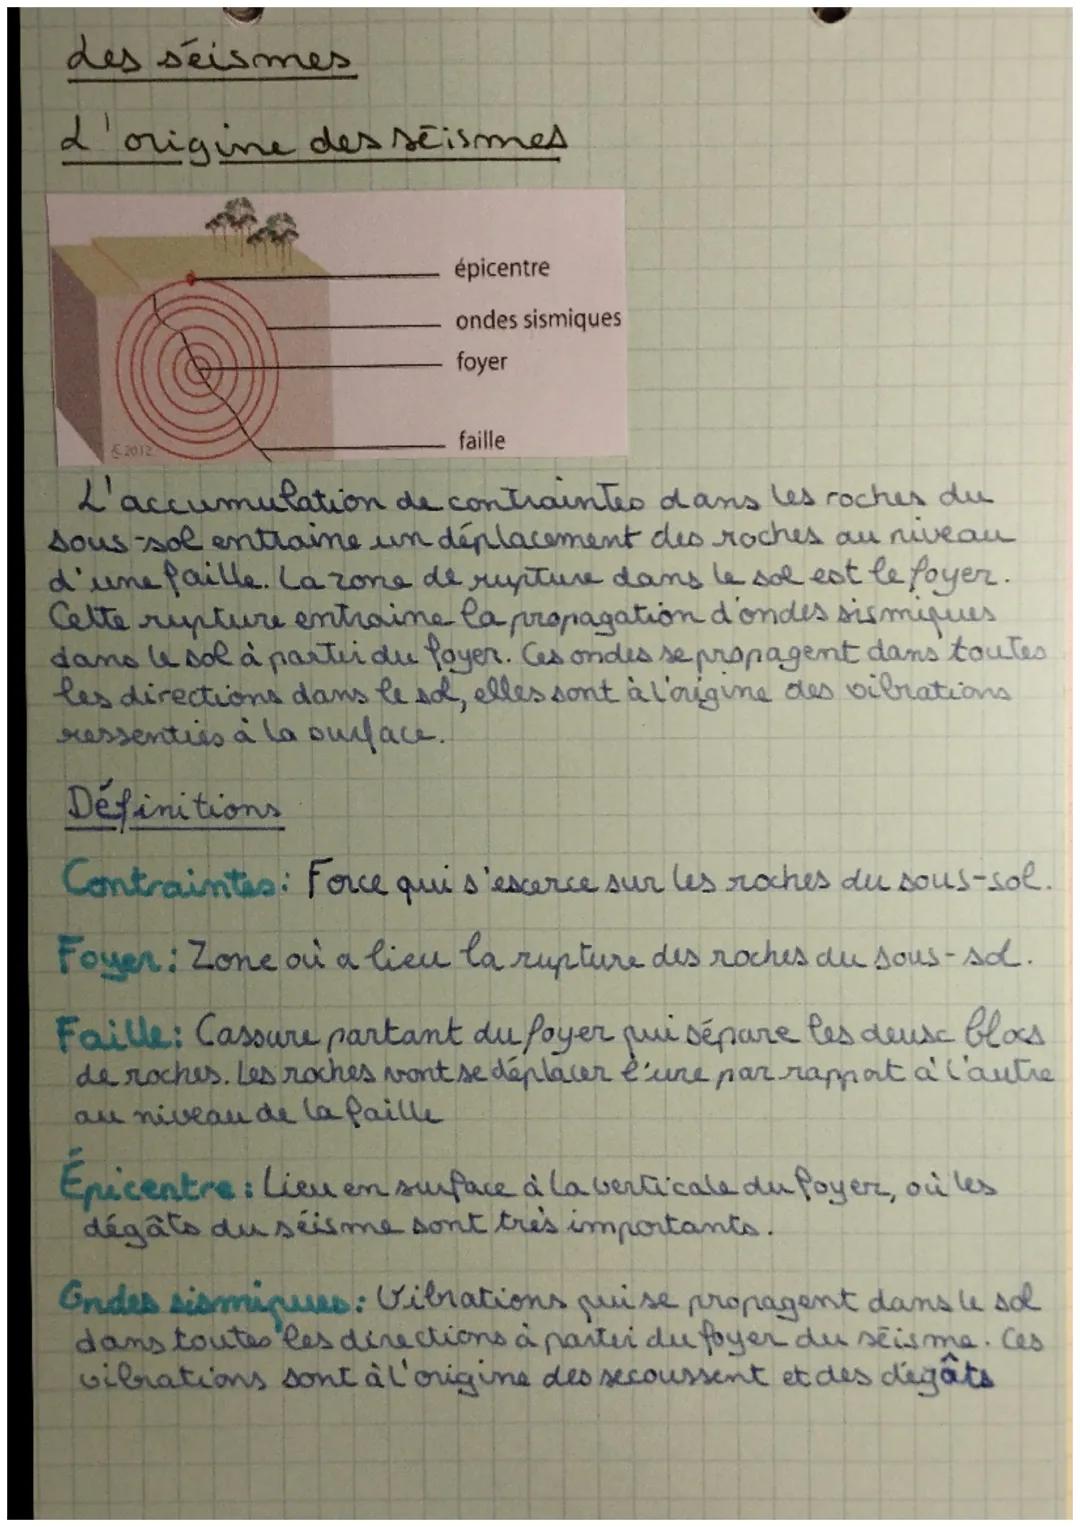 Les séismes
L'origine des séismes
épicentre
ondes sismiques
foyer
faille
©2012
L'accumulation de contraintes dans les roches du
sous-sol entraine un déplacement des roches au niveau
d'une faille. La zone de rupture dans le sol est le foyer.
Cette rupture entraine la propagation d'ondes sismiques
dans le sol à partir du foyer. Ces ondes se propagent dans toutes
les directions dans le sol, elles sont à l'origine des vibrations
ressenties à la surface.
Définitions
Contraintes: Force qui s'exerce sur les roches du sous-sol.
Foyer: Zone où a lieu la rupture des roches du sous-sol.
Faille: Cassure partant du foyer qui sépare les deux blocs
de roches. Les roches vont se déplacer l'une par rapport à l'autre
au niveau de la faille
Épicentre: Lieu en surface à la verticale du foyer, où les
dégâts du séisme sont très importants.
Ondes sismiques: Vibrations qui se propagent dans le sol
dans toutes les directions à partir du foyer du séisme. Ces
vibrations sont à l'origine des secoussent et des dégâts